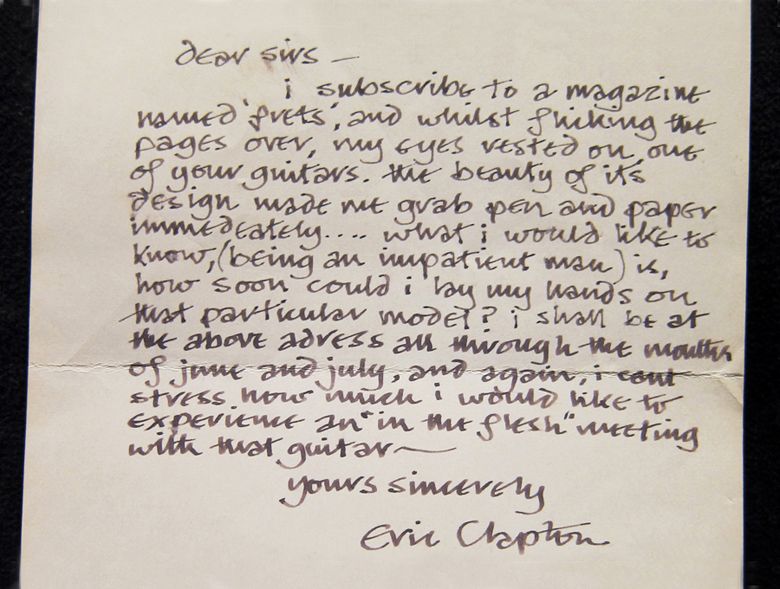 dear sirs —
i subscribe to a magazine
named 'frets', and whilst flicking the
pages over, my eyes rested on one
of your guitars. the beauty of its
design made me grab pen and paper
immedeately.... what i would like to
know, (being an impatient man) is,
how soon could i lay my hands on
that particular model? i shall be at
the above adress all through the months
of june and july, and again, i cont
stress how much i would like to
experience an "in the flesh" meeting
with that guitar —
yours sincerely
Eric Clapton